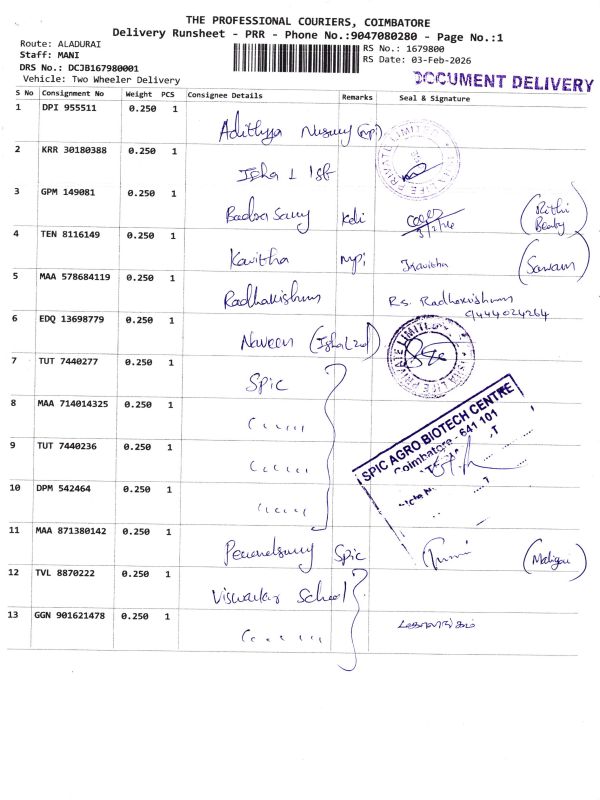 THE PROFESSIONAL COURIERS, COIMBATORE
Delivery Runsheet - PRR - Phone No.:9047080280 - Page No.:1
Route: ALADURAI
Staff: MANI
DRS No.: DCJB167980001
Vehicle: Two Wheeler Delivery
RS No.: 1679800
RS Date: 03-Feb-2026
DOCUMENT DELIVERY
S No Consignment No Weight PCS Consignee Details Remarks Seal & Signature
1 DPI 955511 0.250 1 Adithya
2 KRR 30180388 0.250 1 Isha
LIFE PRIVATE LIMITED
3 GPM 149081 0.250 1 Badra Samy Kdi 3/2/26 (Rithi
4 TEN 8116149 0.250 1 Kavitha mpi Kavitha
5 MAA 578684119 0.250 1 Radhakrishnan Rs. Radhakrishnan
9444024264
6 EDQ 13698779 0.250 1 Naveen
ISHA LIFE PRIVATE LIMITED
7 TUT 7440277 0.250 1 SPic
8 MAA 714014325 0.250 1
9 TUT 7440236 0.250 1
10 DPM 542464 0.250 1
SPIC AGRO BIOTECH CENTRE
Coimbatore - 641 101
11 MAA 871380142 0.250 1 Spic
12 TVL 8870222 0.250 1 School
13 GGN 901621478 0.250 1